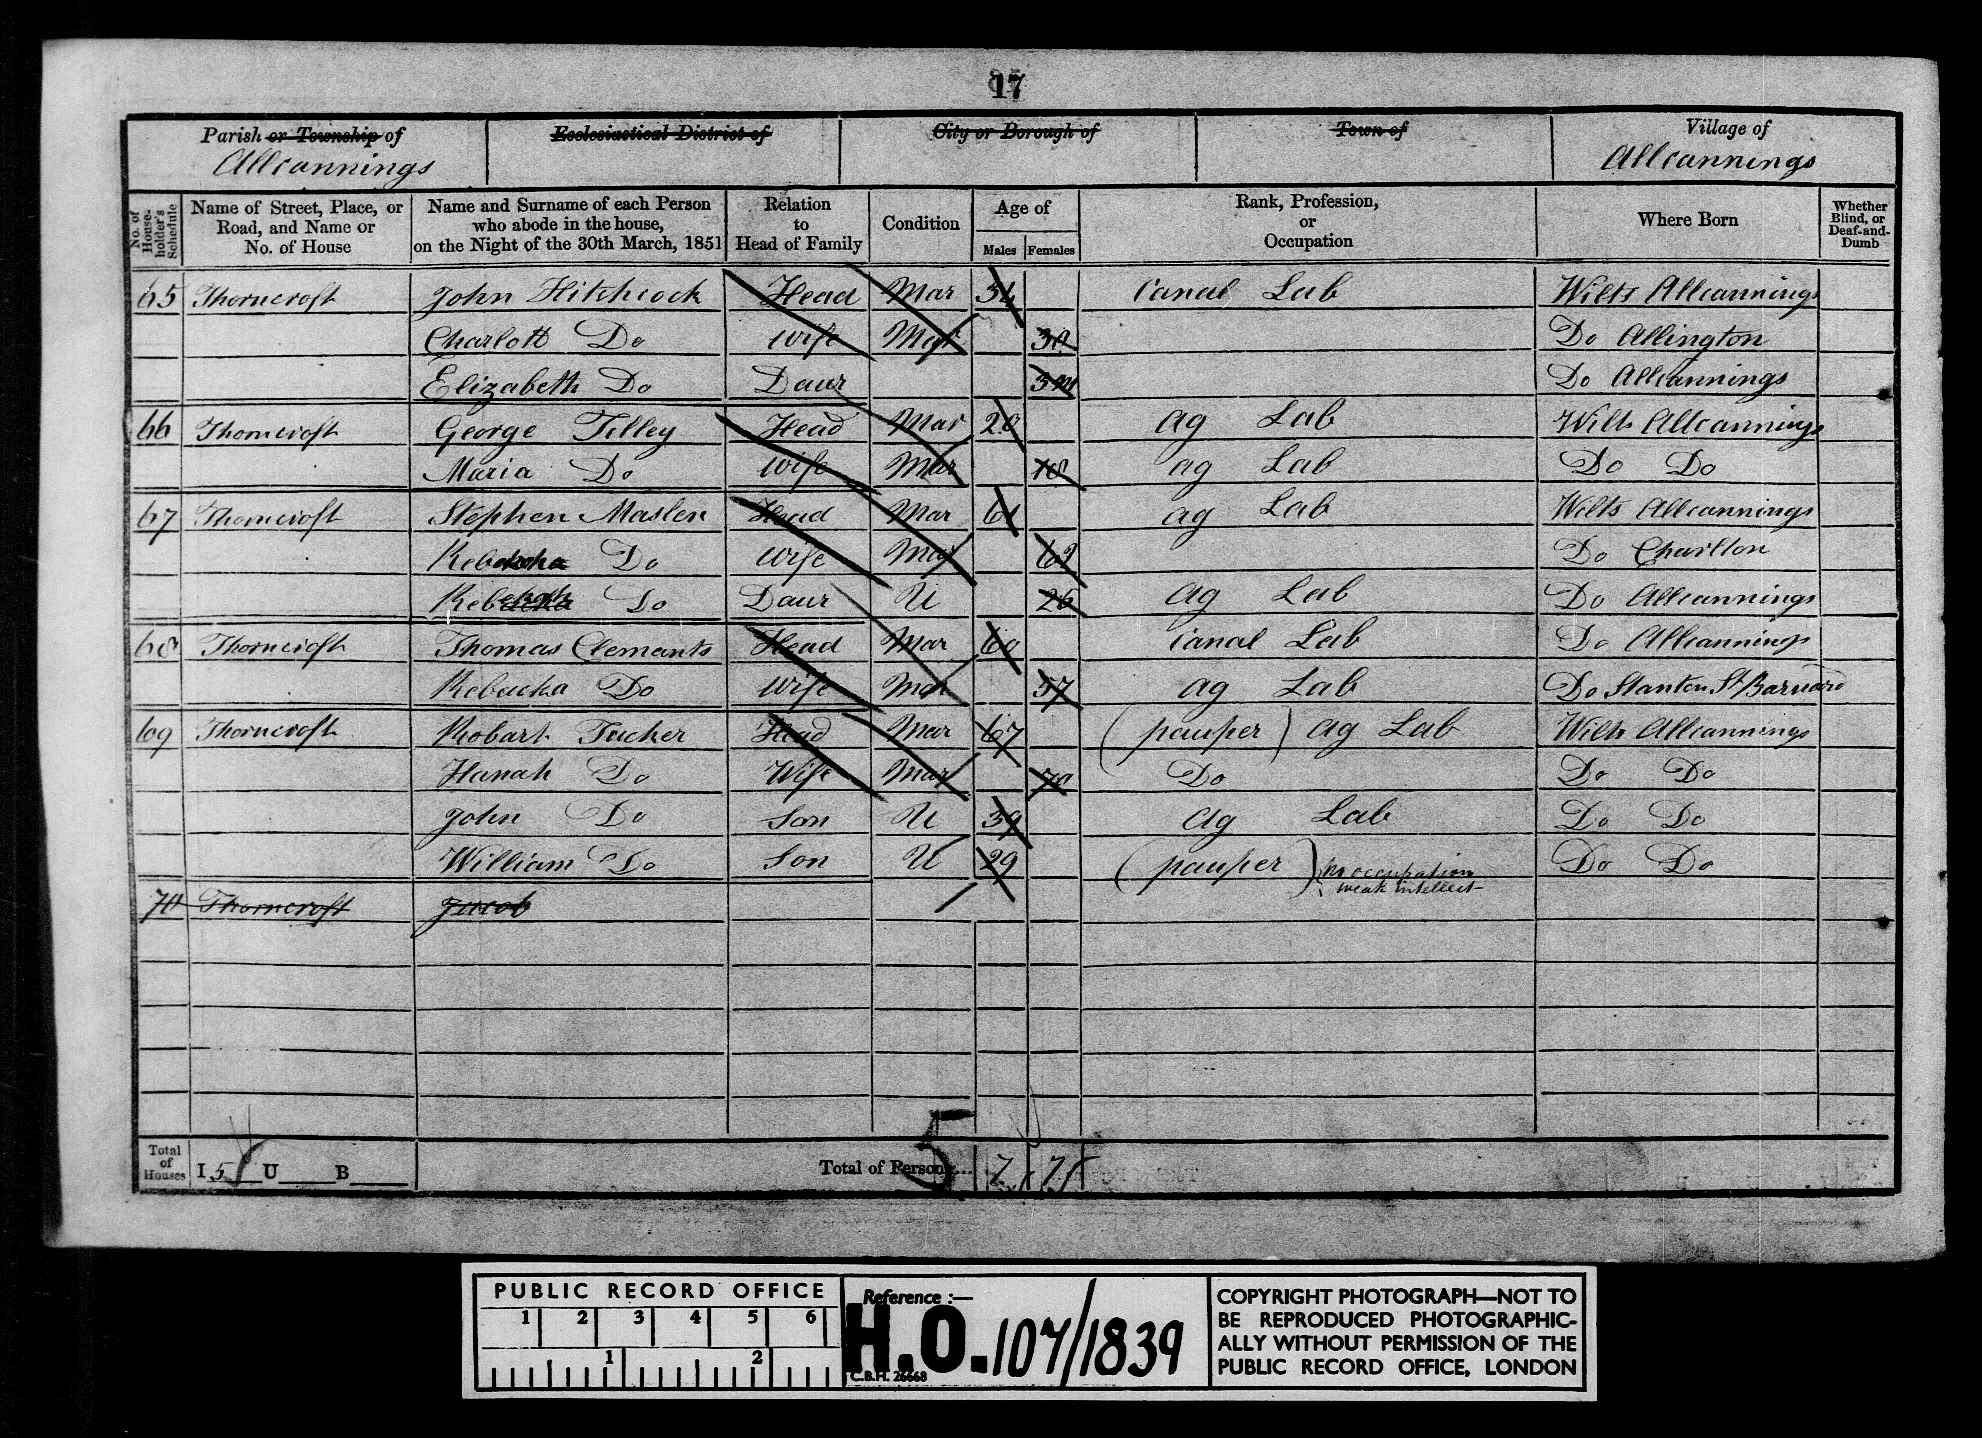 17
Parish or Township of
Allcannings
Ecclesiastical District of
City or Borough of
Town of
Village of
Allcannings
No. of House-holder's Schedule
Name of Street, Place, or Road, and Name or No. of House
Name and Surname of each Person who abode in the house, on the Night of the 30th March, 1851
Relation to Head of Family
Condition
Age of
Males Females
Rank, Profession, or Occupation
Where Born
Whether Blind, or Deaf-and-Dumb
65 Thorncroft John Hitchcock Head Mar 34 Canal Lab Wilts Allcannings
Charlott Do Wife Mar 30 Do Allington
Elizabeth Do Daur 3M Do Allcannings
66 Thorncroft George Tilley Head Mar 20 Ag Lab Wilts Allcannings
Maria Do Wife Mar 18 Ag Lab Do Do
67 Thorncroft Stephen Maslen Head Mar 61 Ag Lab Wilts Allcannings
Do Wife Mar 62 Do Charlton
Do Daur U 26 Ag Lab Do Allcannings
68 Thorncroft Thomas Clemants Head Mar 60 Canal Lab Do Allcannings
Rebecka Do Wife Mar 57 Ag Lab Do Stanton St Barnard
69 Thorncroft Robart Tucker Head Mar 67 (pauper) Ag Lab Wilts Allcannings
Hanah Do Wife Mar 70 Do Do Do
John Do Son U 39 Ag Lab Do Do
William Do Son U 29 (pauper) no occupation weak intellect Do Do
70 Thorncroft Jacob
Total of Houses I 5 U B
Total of Persons... 7 7
5
PUBLIC RECORD OFFICE
1 2 3 4 5 6
1 2
Reference :—
H.O. 107/1839
C.B.H. 26668
COPYRIGHT PHOTOGRAPH—NOT TO
BE REPRODUCED PHOTOGRAPHIC-
ALLY WITHOUT PERMISSION OF THE
PUBLIC RECORD OFFICE, LONDON